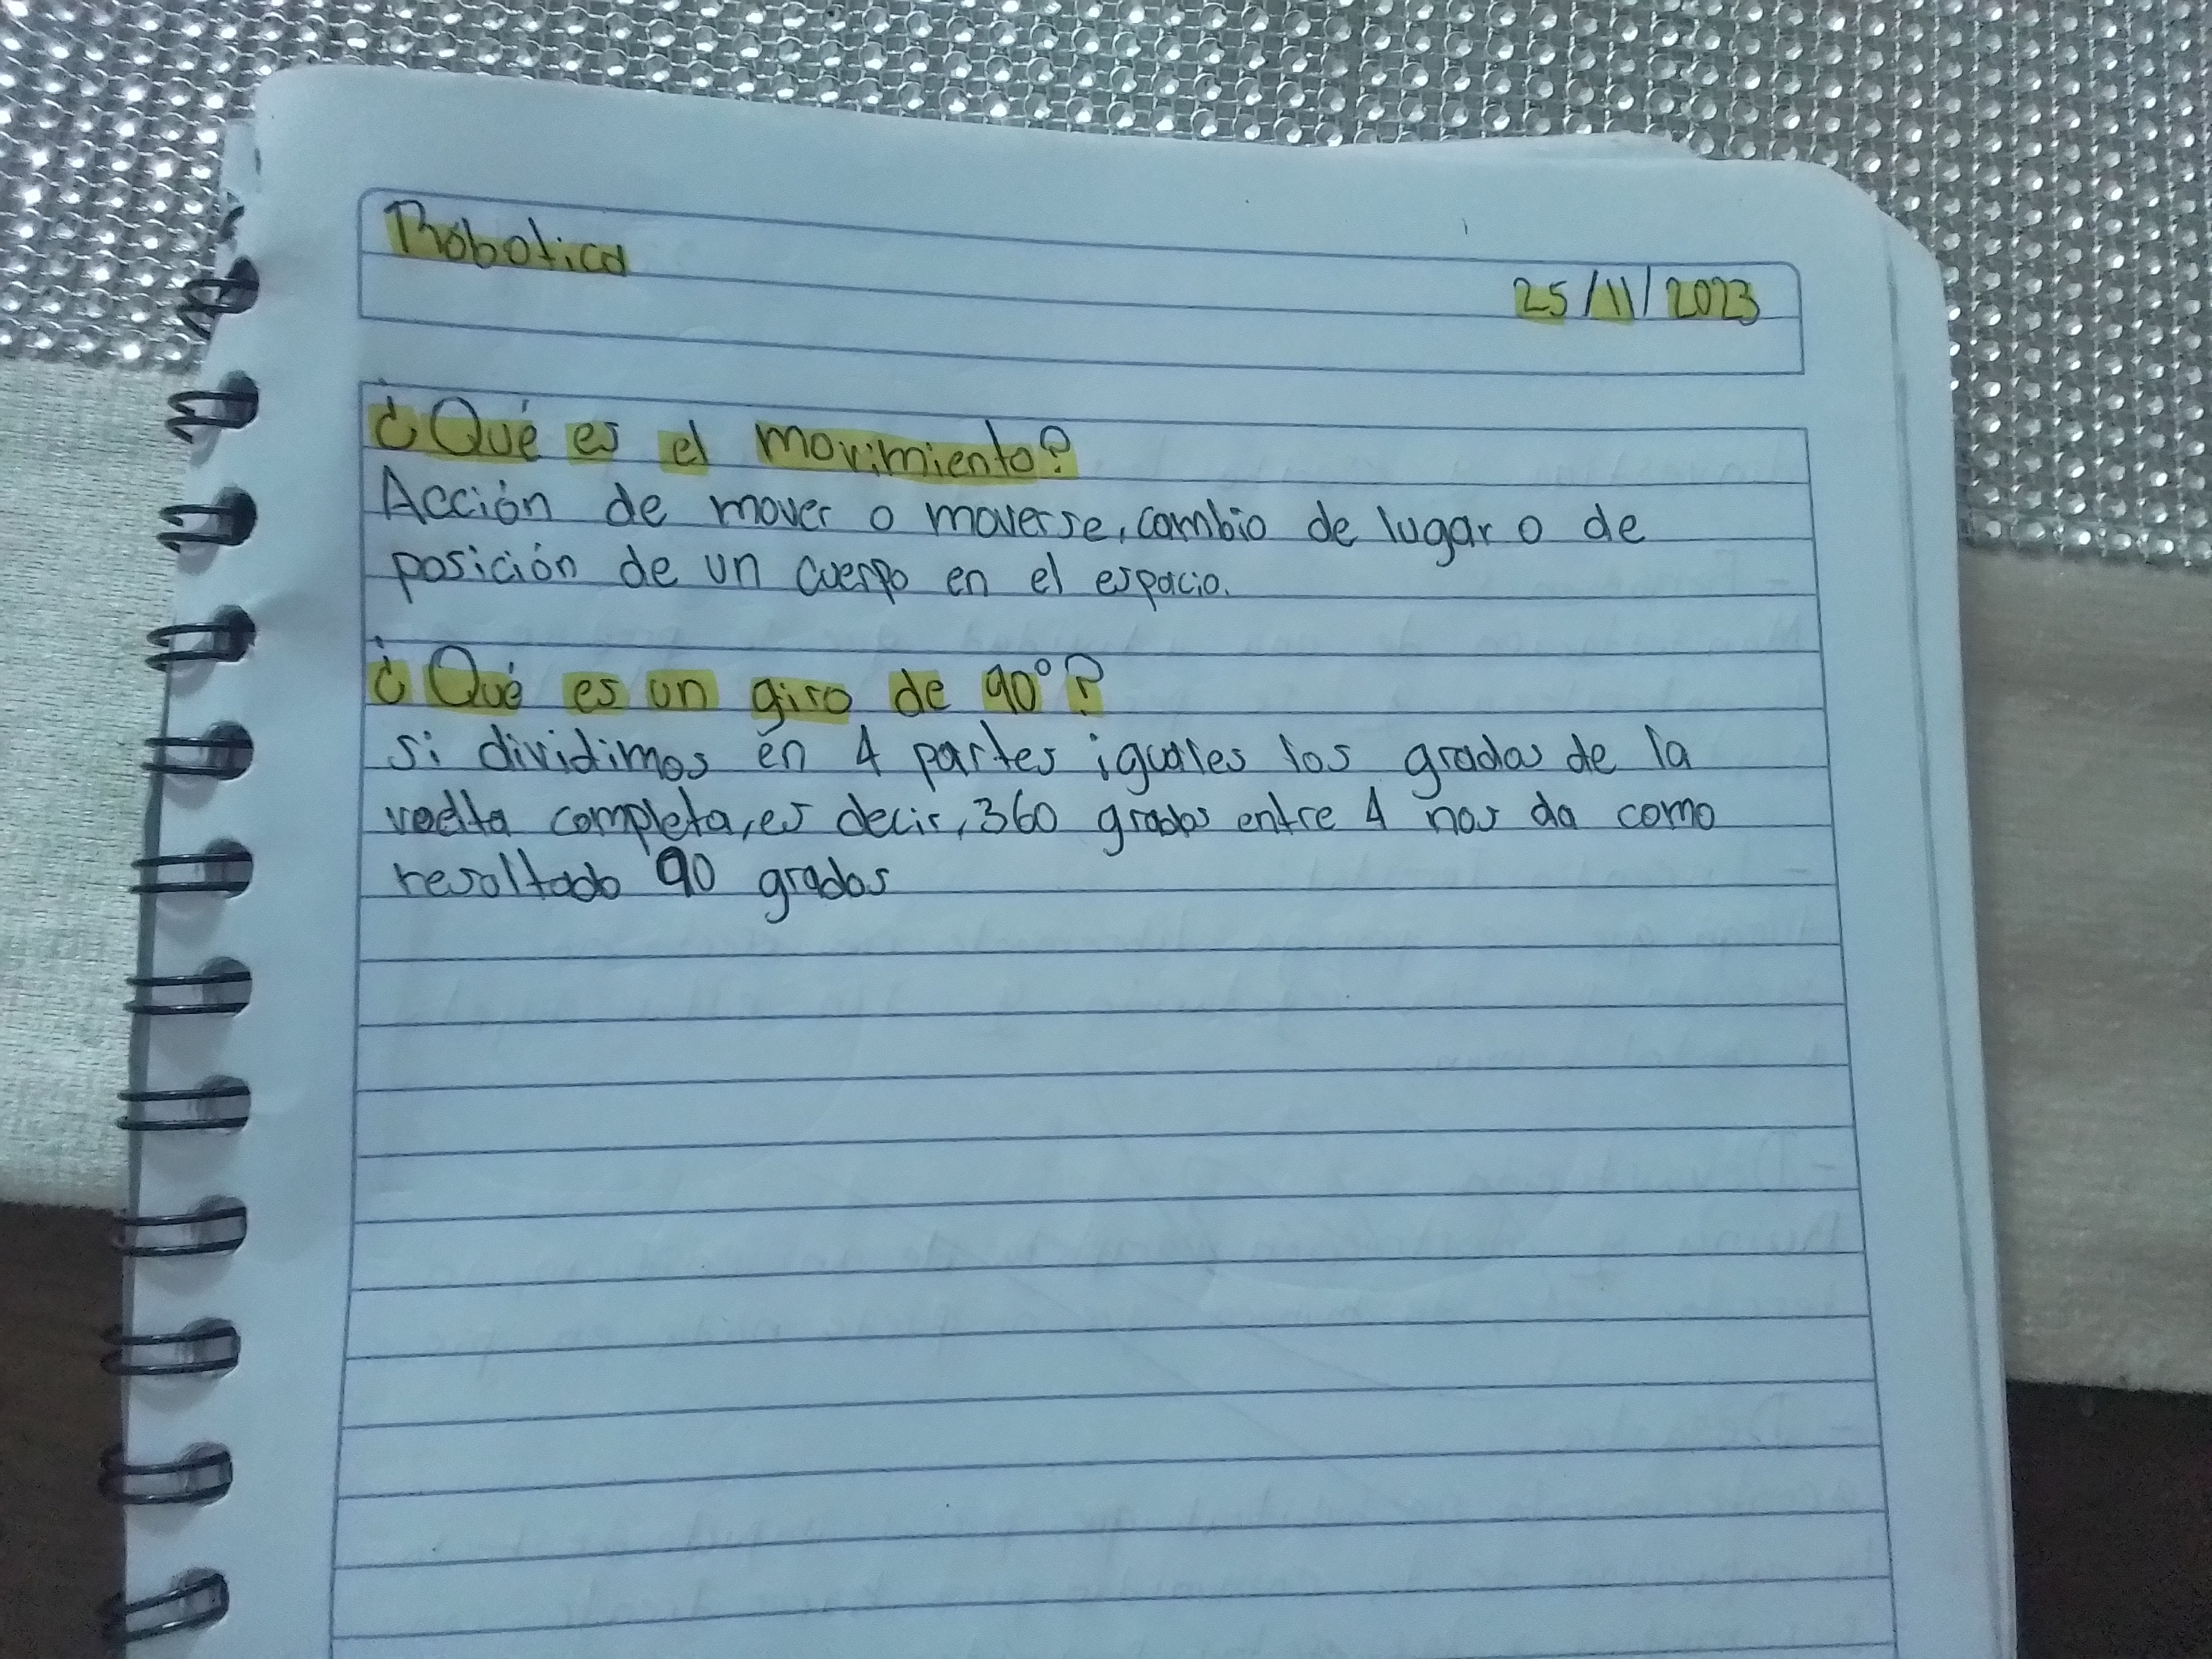 Robotica
25/11/2023
¿Qué es el movimiento?
Acción de mover o moverse, cambio de lugar o de
posición de un cuerpo en el espacio.
¿Qué es un giro de 90°?
si dividimos en 4 partes iguales los grados de la
vuelta completa, es decir, 360 grados entre 4 nos da como
resultado 90 grados